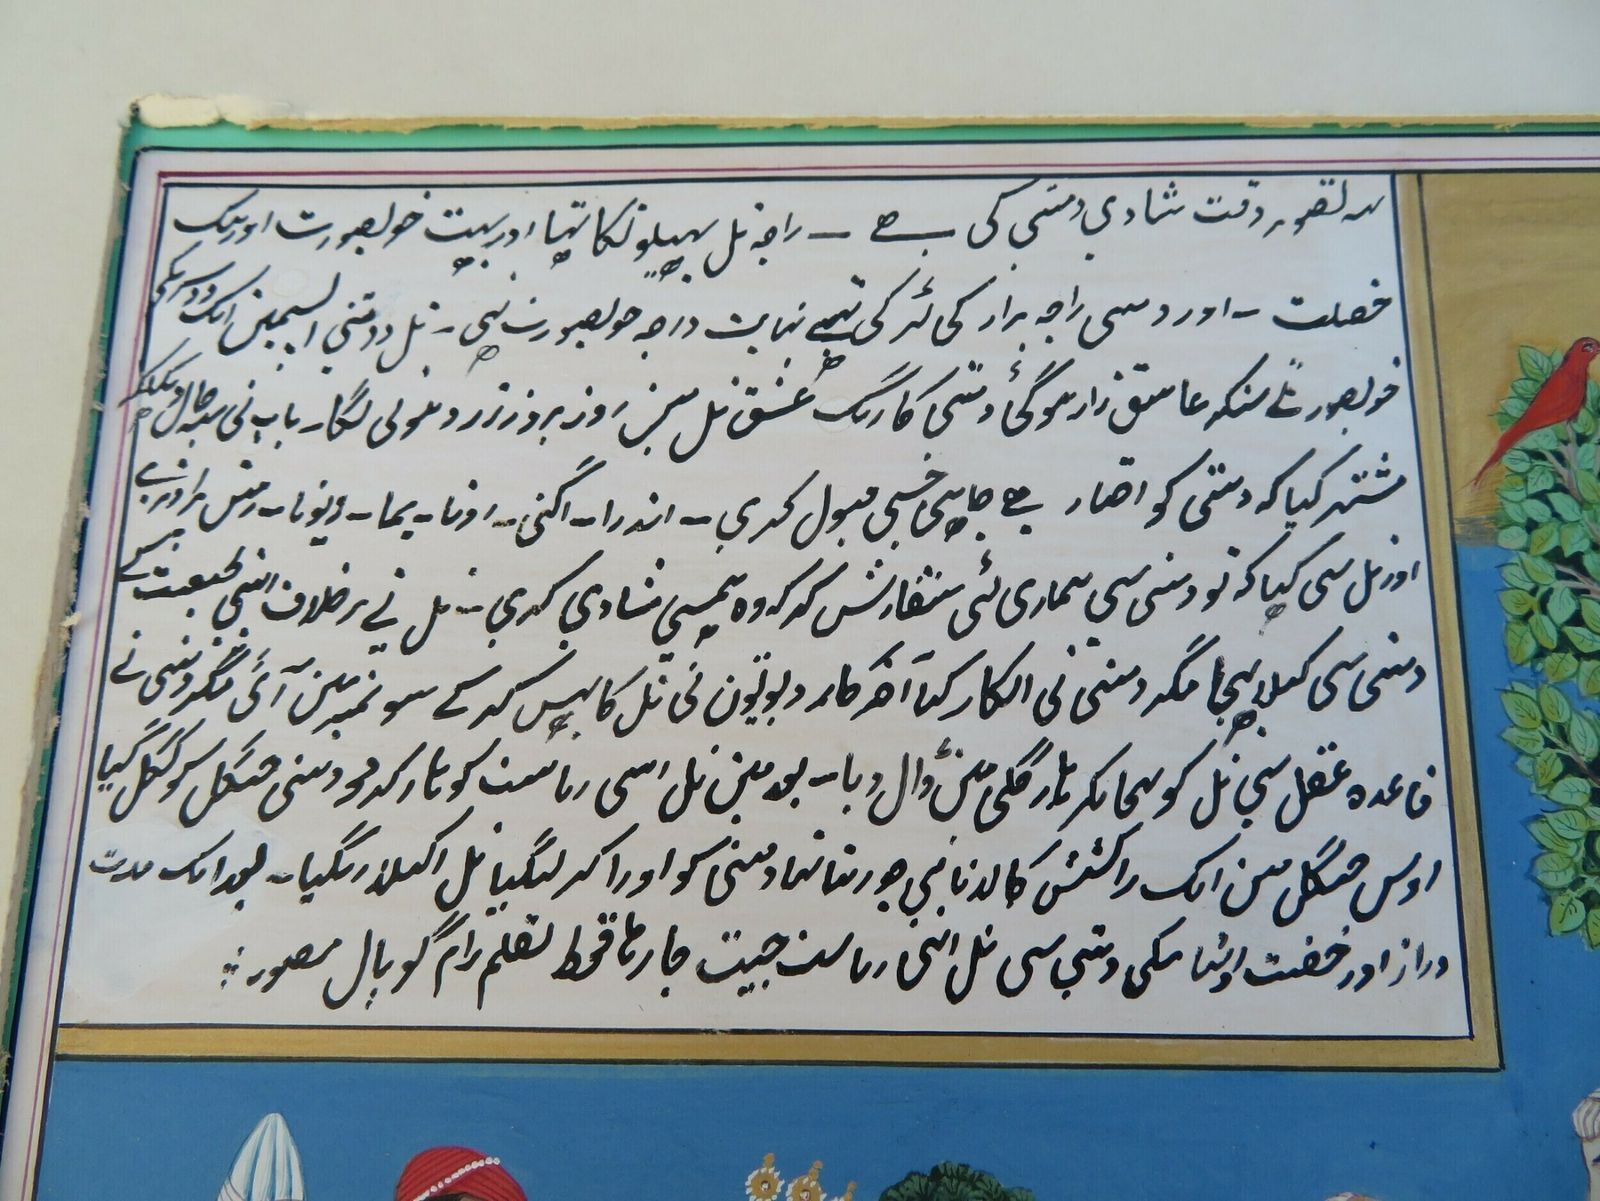 یہ تصویر وقت شادی دمنتی کی ہے - راجہ نل تہا اور بہت خوبصورت اور نیک
خصلت - اور دمنتی راجہ برار کی لڑکی تہی نہایت درجہ خوبصورت تہی - نل و دمنتی ایک دوسری کی
سنکر عاشق زار ہو گئی دمنتی کا رنگ عشق نل مین روز بروز زرد ہونی لگا - باپ نی یہ حال دیکہکر
مشتہر کیا کہ دمنتی کو اختیار ہے چاہی جسی قبول کری - اندرا - اگنی - یما -
اور نل سی کہا کہ تو دمنتی سی ہماری لئی سفارش کر کہ وہ ہمسی شادی کری - نل نے برخلاف اپنی طبیعت کے
دمنتی سی کہلا بہیجا مگر دمنتی نی انکار کیا آخر کار دیوتون نی نل کا بہیس کر کے سونمبر مین آئی مگر دمنتی نے
عقل سی نل کو گلی مین ڈال دیا - بعد مین نل اسی ریاست کو ہار کر دمنتی جنگل کو نکل گیا
اوس جنگل مین ایک راکشش نامی جو رہتا تہا دمنتی کو اوڑا کر لیگیا نل اکیلا رہگیا - بعد ایک مدت
دراز اور دمنتی سی نل اپنی ریاست جیت فقط بقلم رام گوپال مصور